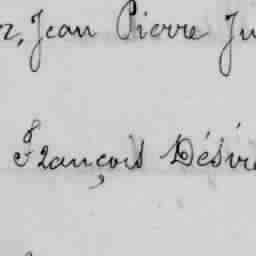 Jean Pierre Ju
François Désiré